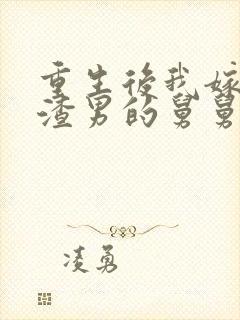 重生後我嫁
渣男的舅舅
凌勇